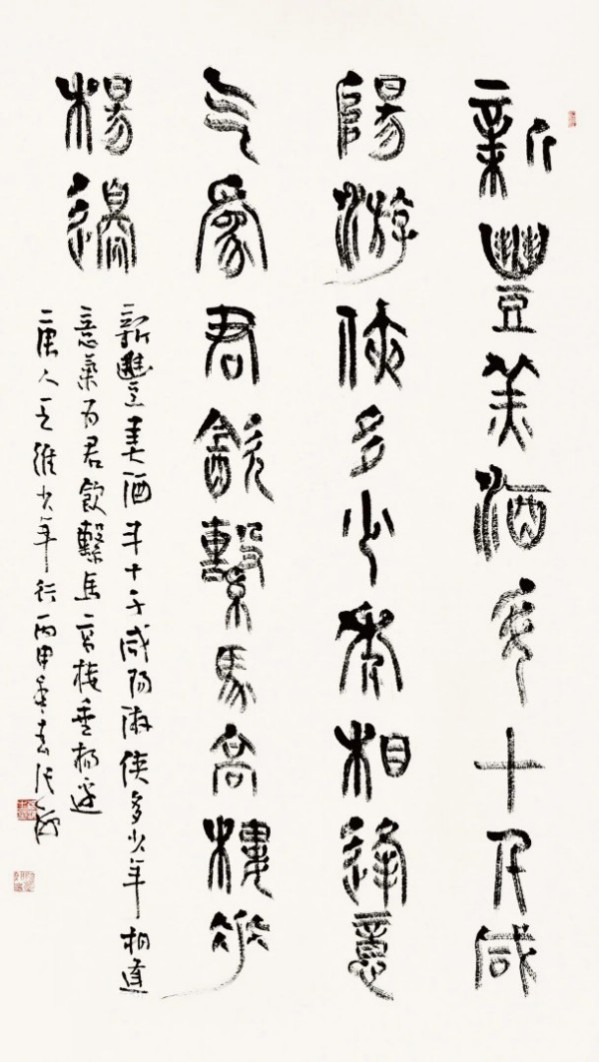 新豐美酒斗十千咸
陽游俠多少年相逢意
气為君飲繫馬高樓垂
楊邊
新豐美酒斗十千咸陽游俠多少年相逢
意氣為君飲繫馬高樓垂楊邊
唐人王維少年行丙申年春